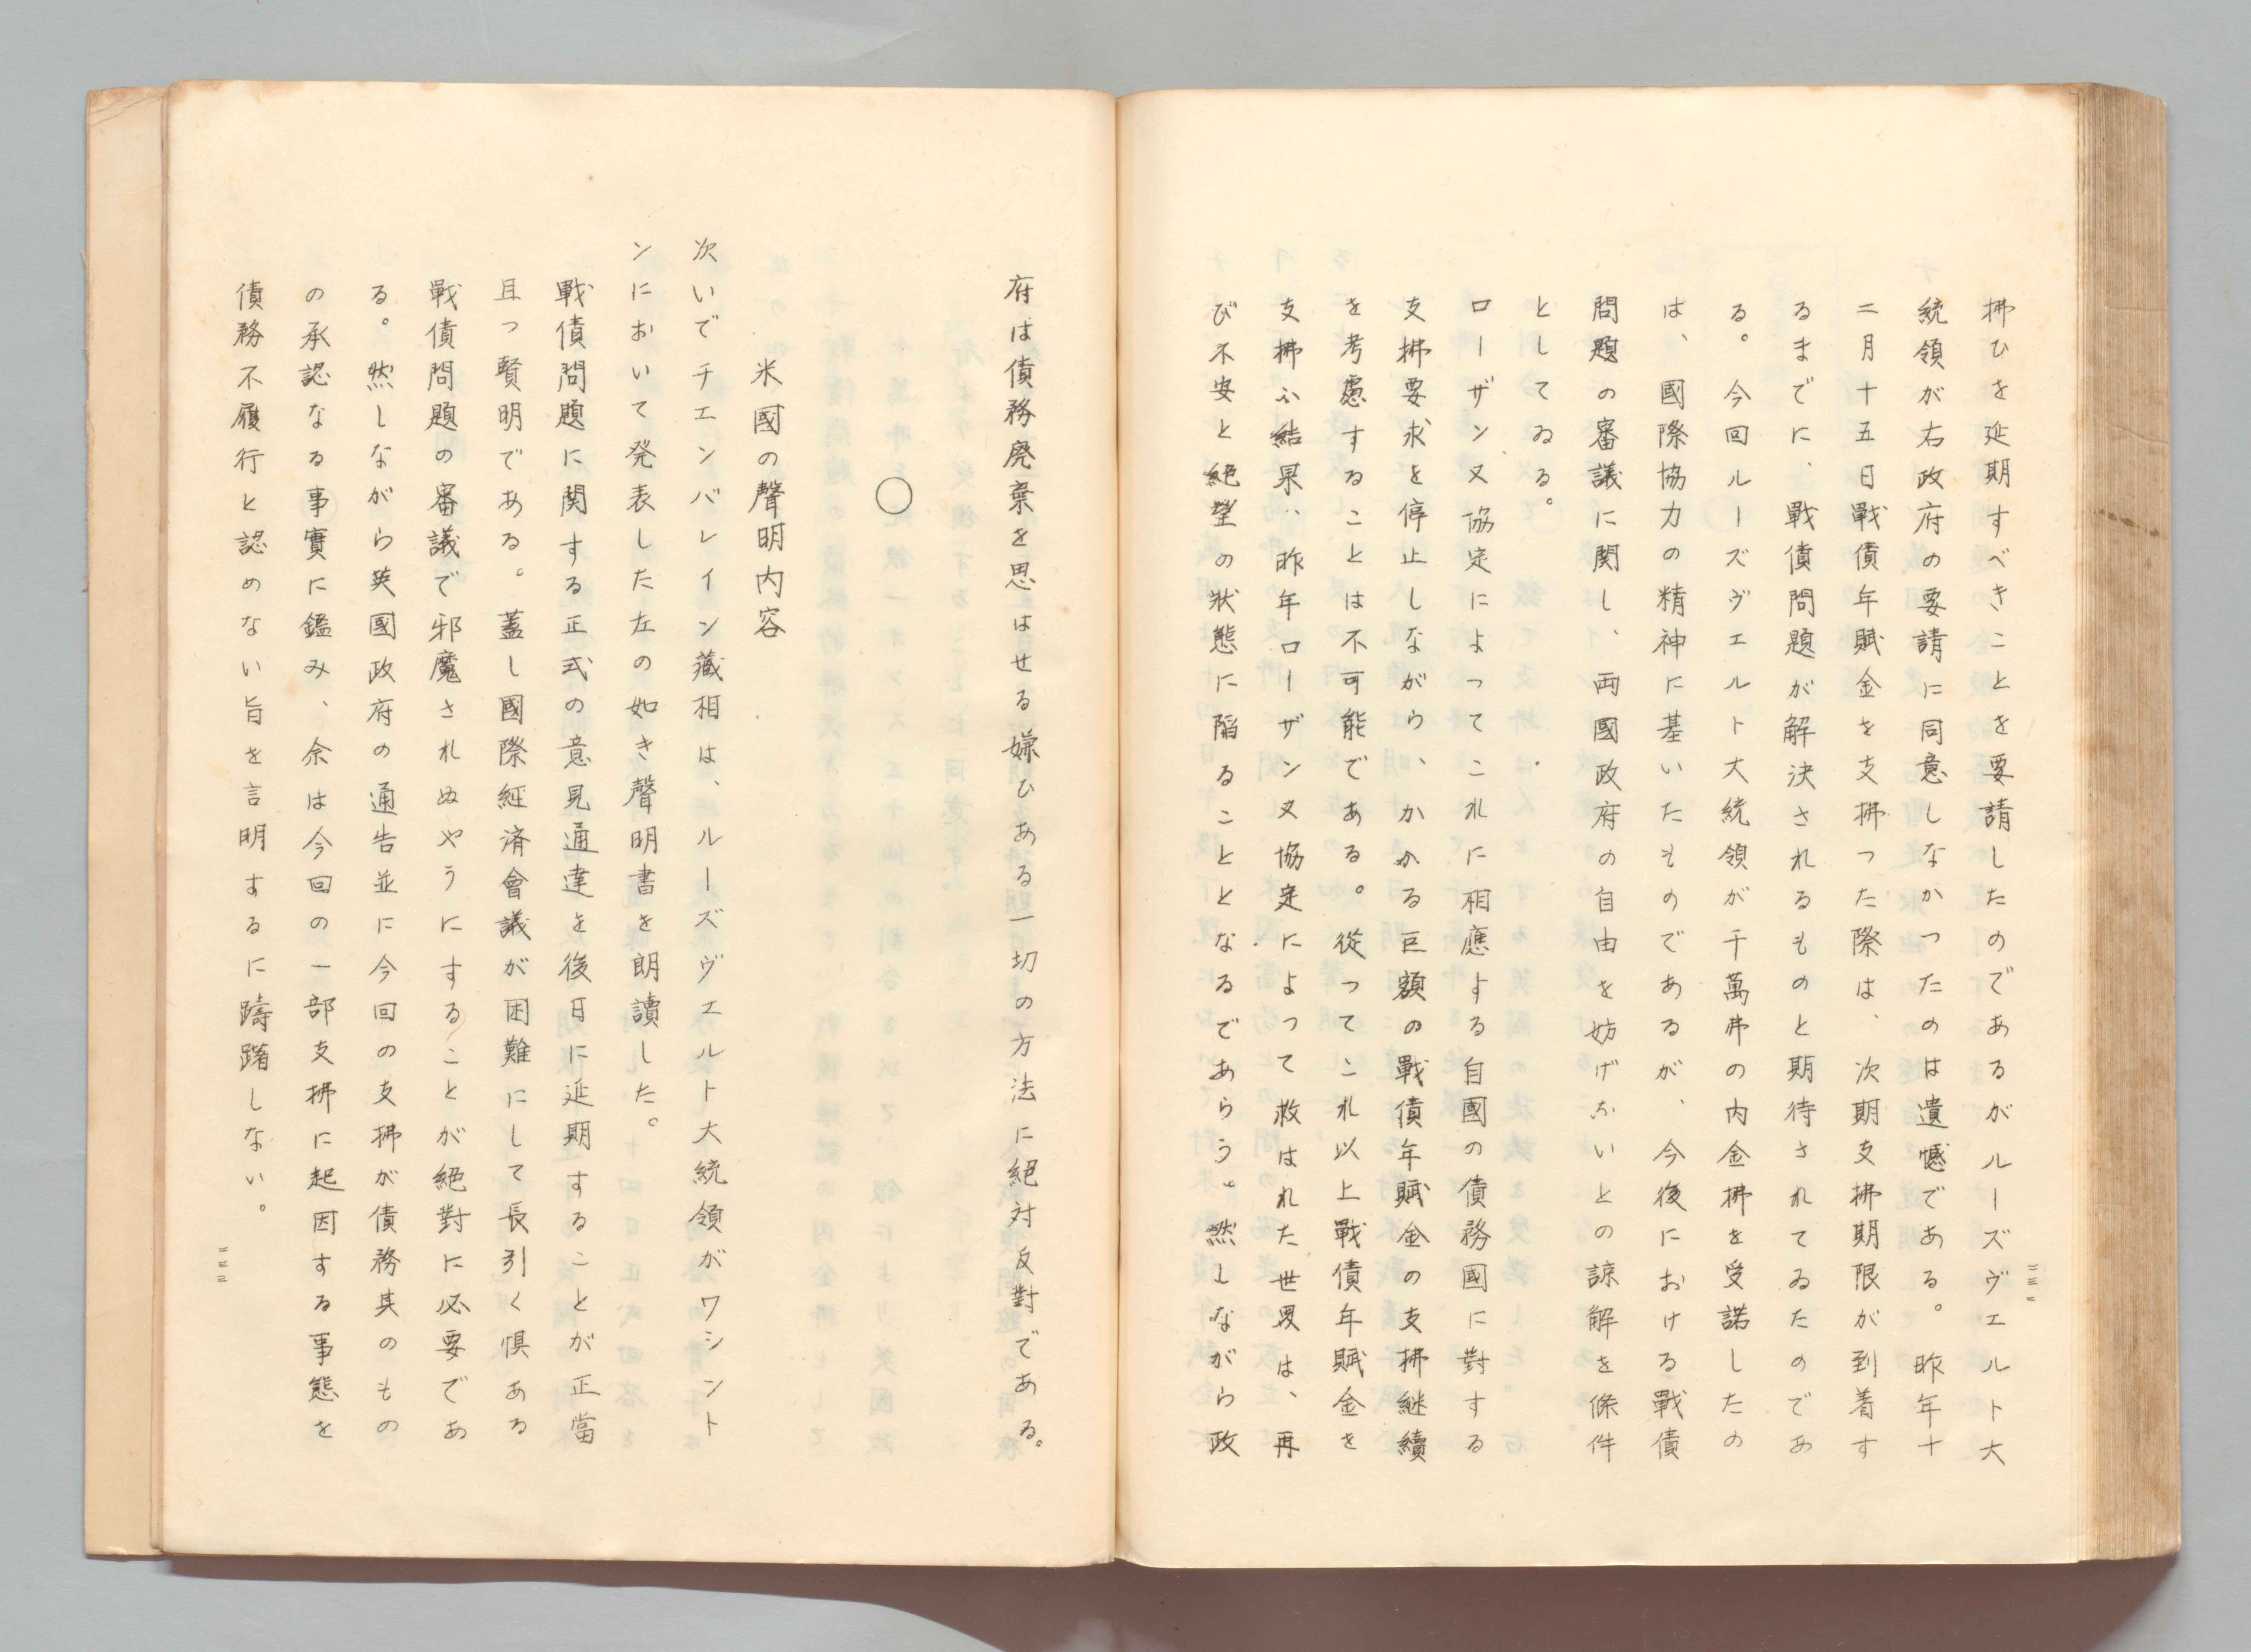 拂ひを延期すべきことを要請したのであるがルーズヴエルト大
統領が右政府の要請に同意しなかつたのは遺憾である。昨年十
二月十五日戰債年賦金を支拂つた際は、次期支拂期限が到着す
るまでに、戰債問題が解決されるものと期待されてゐたのであ
る。今回ルーズヴエルト大統領が千萬弗の内金拂を受諾したの
は、國際協力の精神に基いたものであるが、今後における戰債
問題の審議に関し、両國政府の自由を妨げないとの諒解を條件
としてゐる。
ローザンヌ協定によつてこれに相應する自國の債務國に對する
支拂要求を停止しながら、かかる巨額の戰債年賦金の支拂継續
を考慮することは不可能である。從つてこれ以上戰債年賦金を
支拂ふ結果、昨年ローザンヌ協定によつて救はれた世界は、再
び不安と絶望の状態に陥ることとなるであらう。然しながら政
府は債務廃棄を思はせる嫌ひある一切の方法に絶対反對である。
○
米國の聲明内容
次いでチエンバレイン藏相は、ルーズヴエルト大統領がワシント
ンにおいて発表した左の如き聲明書を朗讀した。
戰債問題に関する正式の意見通達を後日に延期することが正當
且つ賢明である。蓋し國際経済會議が困難にして長引く惧ある
戰債問題の審議で邪魔されぬやうにすることが絶對に必要であ
る。然しながら英國政府の通告並に今回の支拂が債務其のもの
の承認なる事實に鑑み、余は今回の一部支拂に起因する事態を
債務不履行と認めない旨を言明するに躊躇しない。